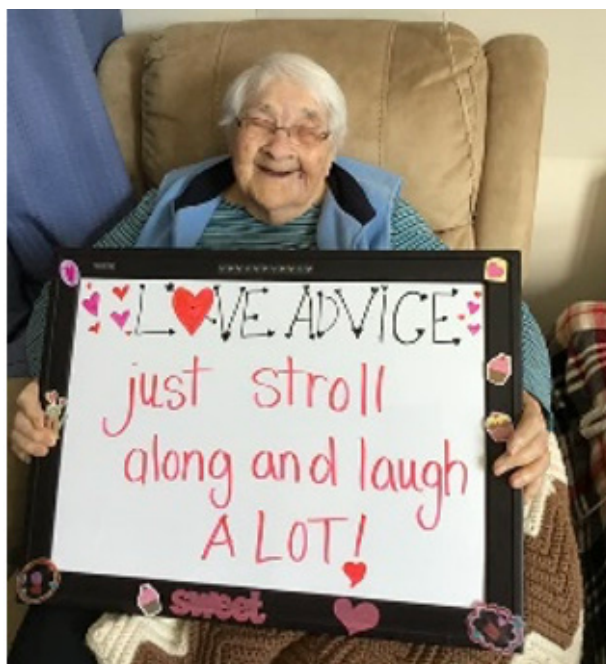 LOVE ADVICE
just stroll
along and laugh
A LOT!
sweet